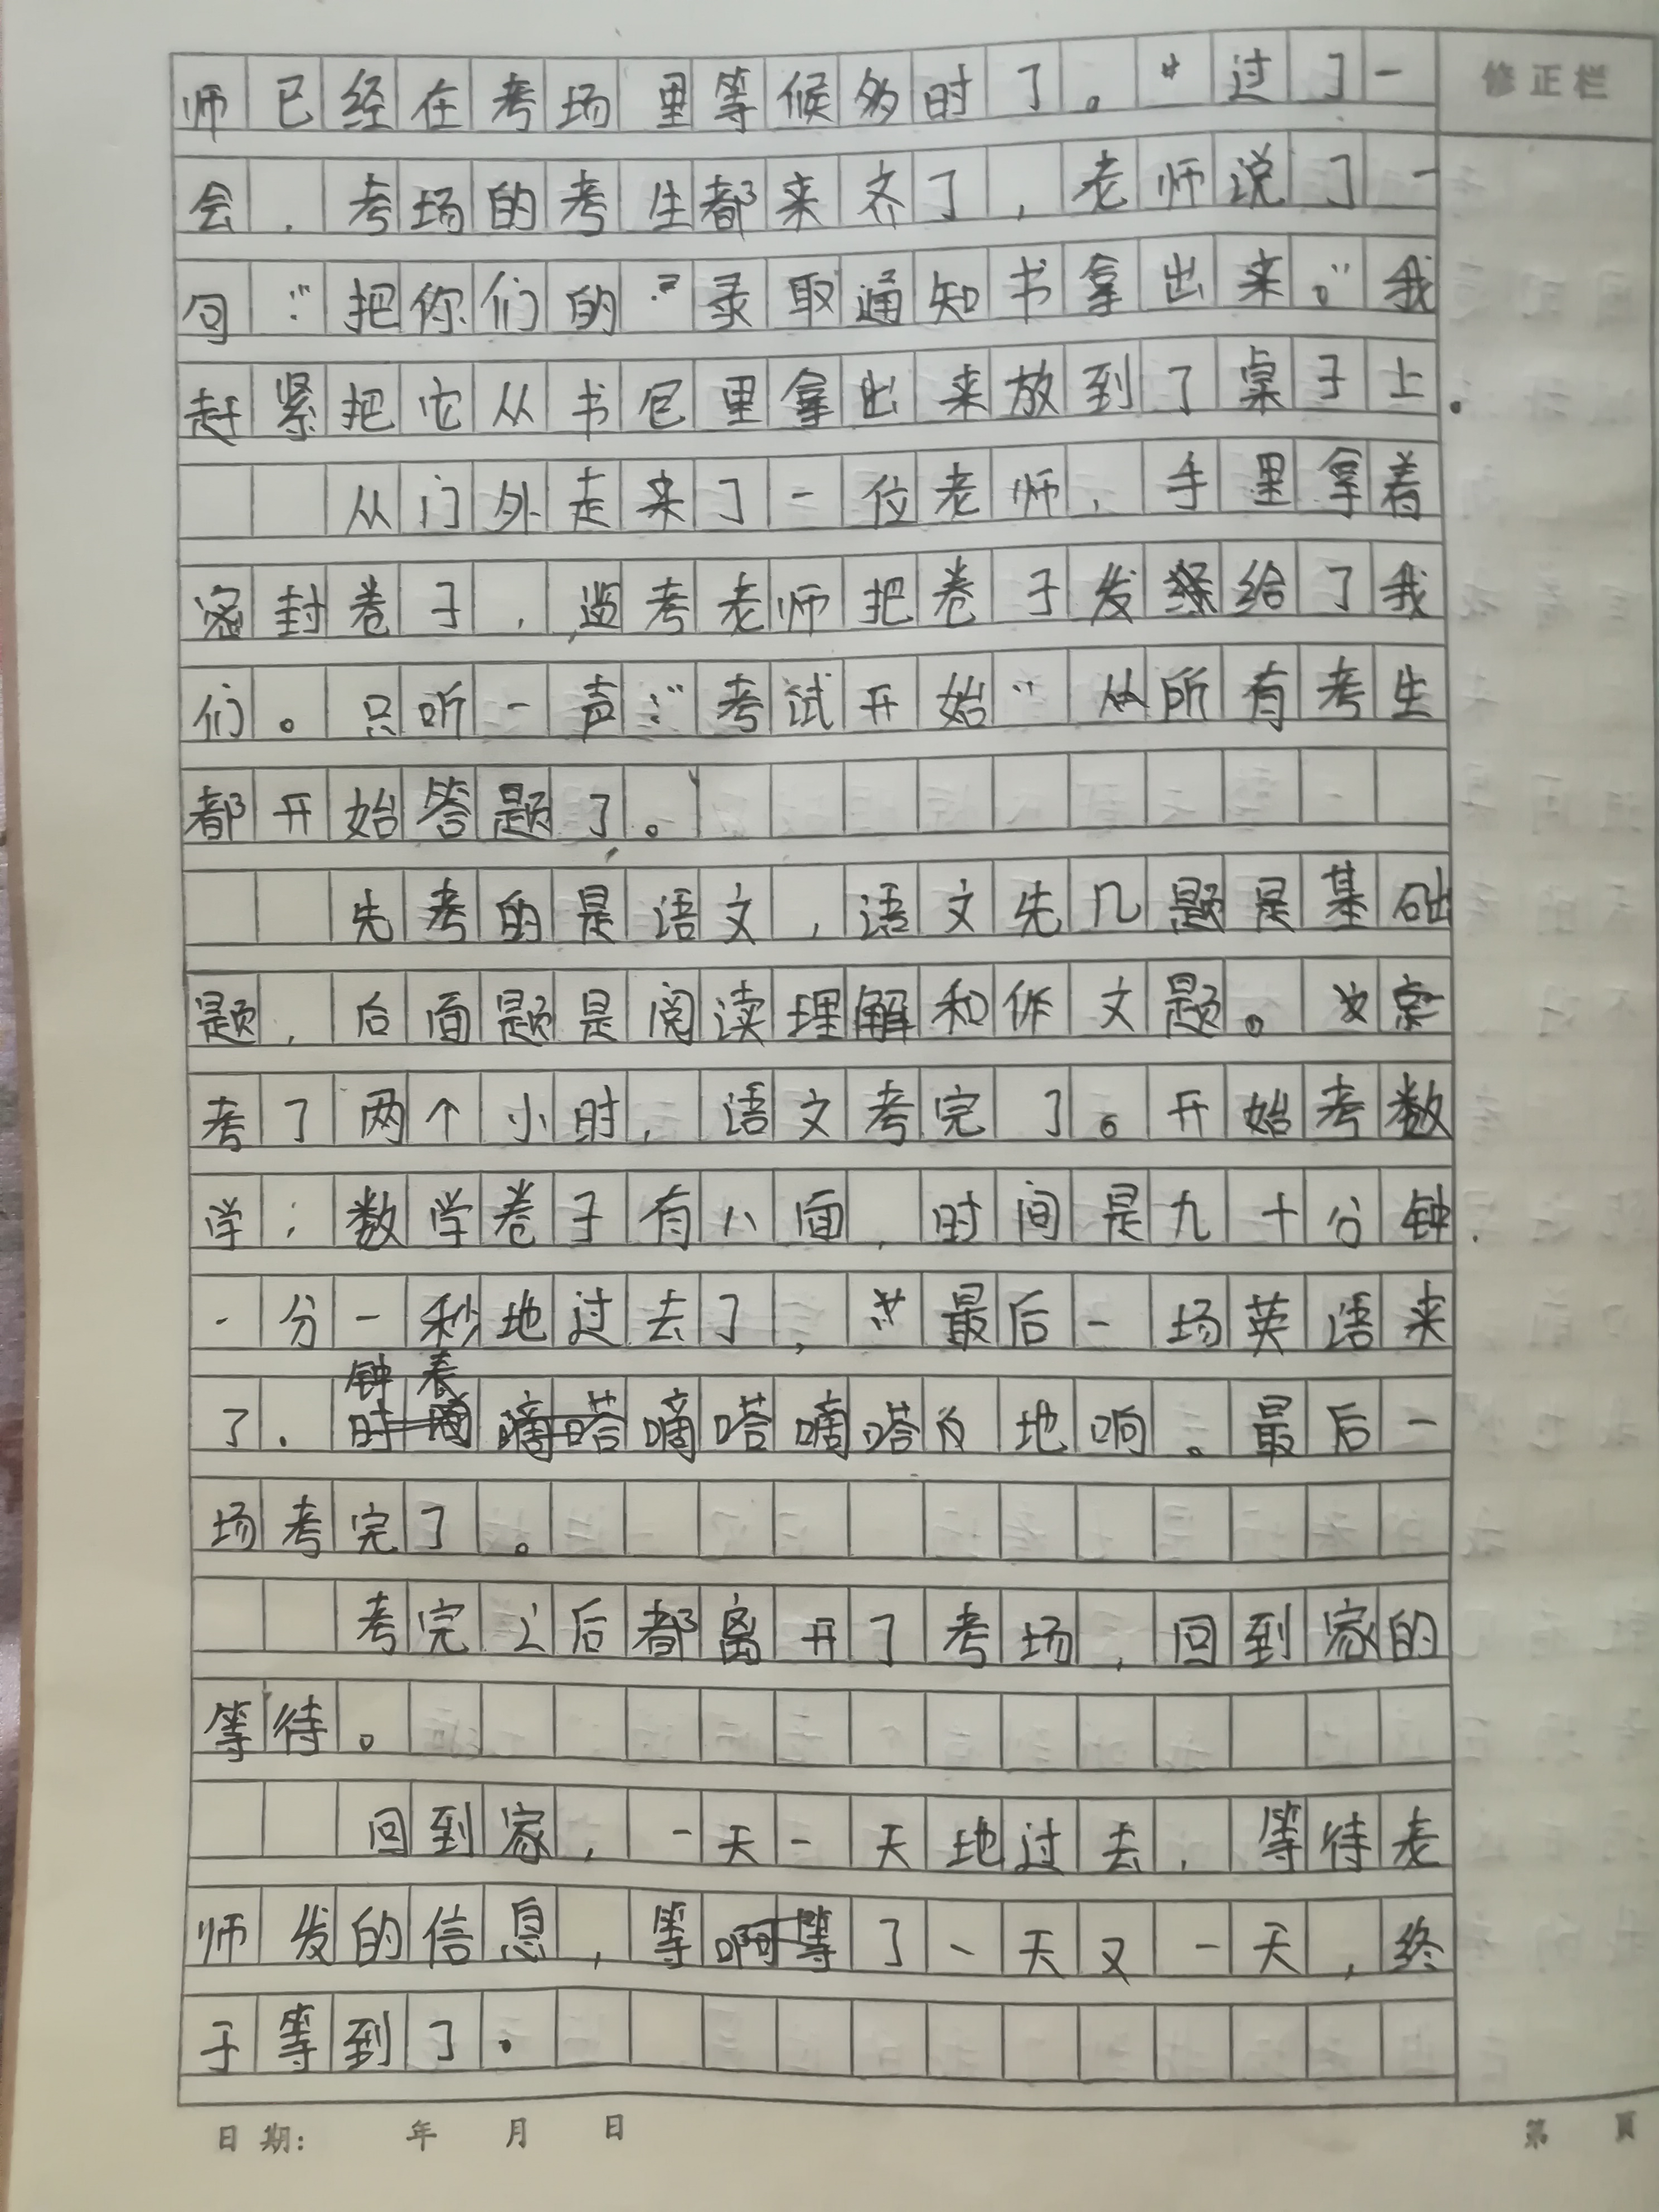 修正栏
师已经在考场里等候多时了。过了一
会，考场的考生都来齐了，老师说了一
句：“把你们的录取通知书拿出来。”我
赶紧把它从书包里拿出来放到了桌子上。
从门外走来了一位老师，手里拿着
密封卷子，监考老师把卷子发给了我
们。只听一声：“考试开始”所有考生
都开始答题了。
先考的是语文，语文先几题是基础
题，后面题是阅读理解和作文题。
考了两个小时，语文考完了。开始考数
学；数学卷子有八面，时间是九十分钟.
一分一秒地过去了，最后一场英语来
了．钟表嘀嗒嘀嗒地响。最后一
场考完了。
考完之后都离开了考场，回到家的
等待。
回到家，一天一天地过去，等待老
师发的信息，等啊等了一天又一天，终
于等到了。
日期： 年 月 日
第 頁